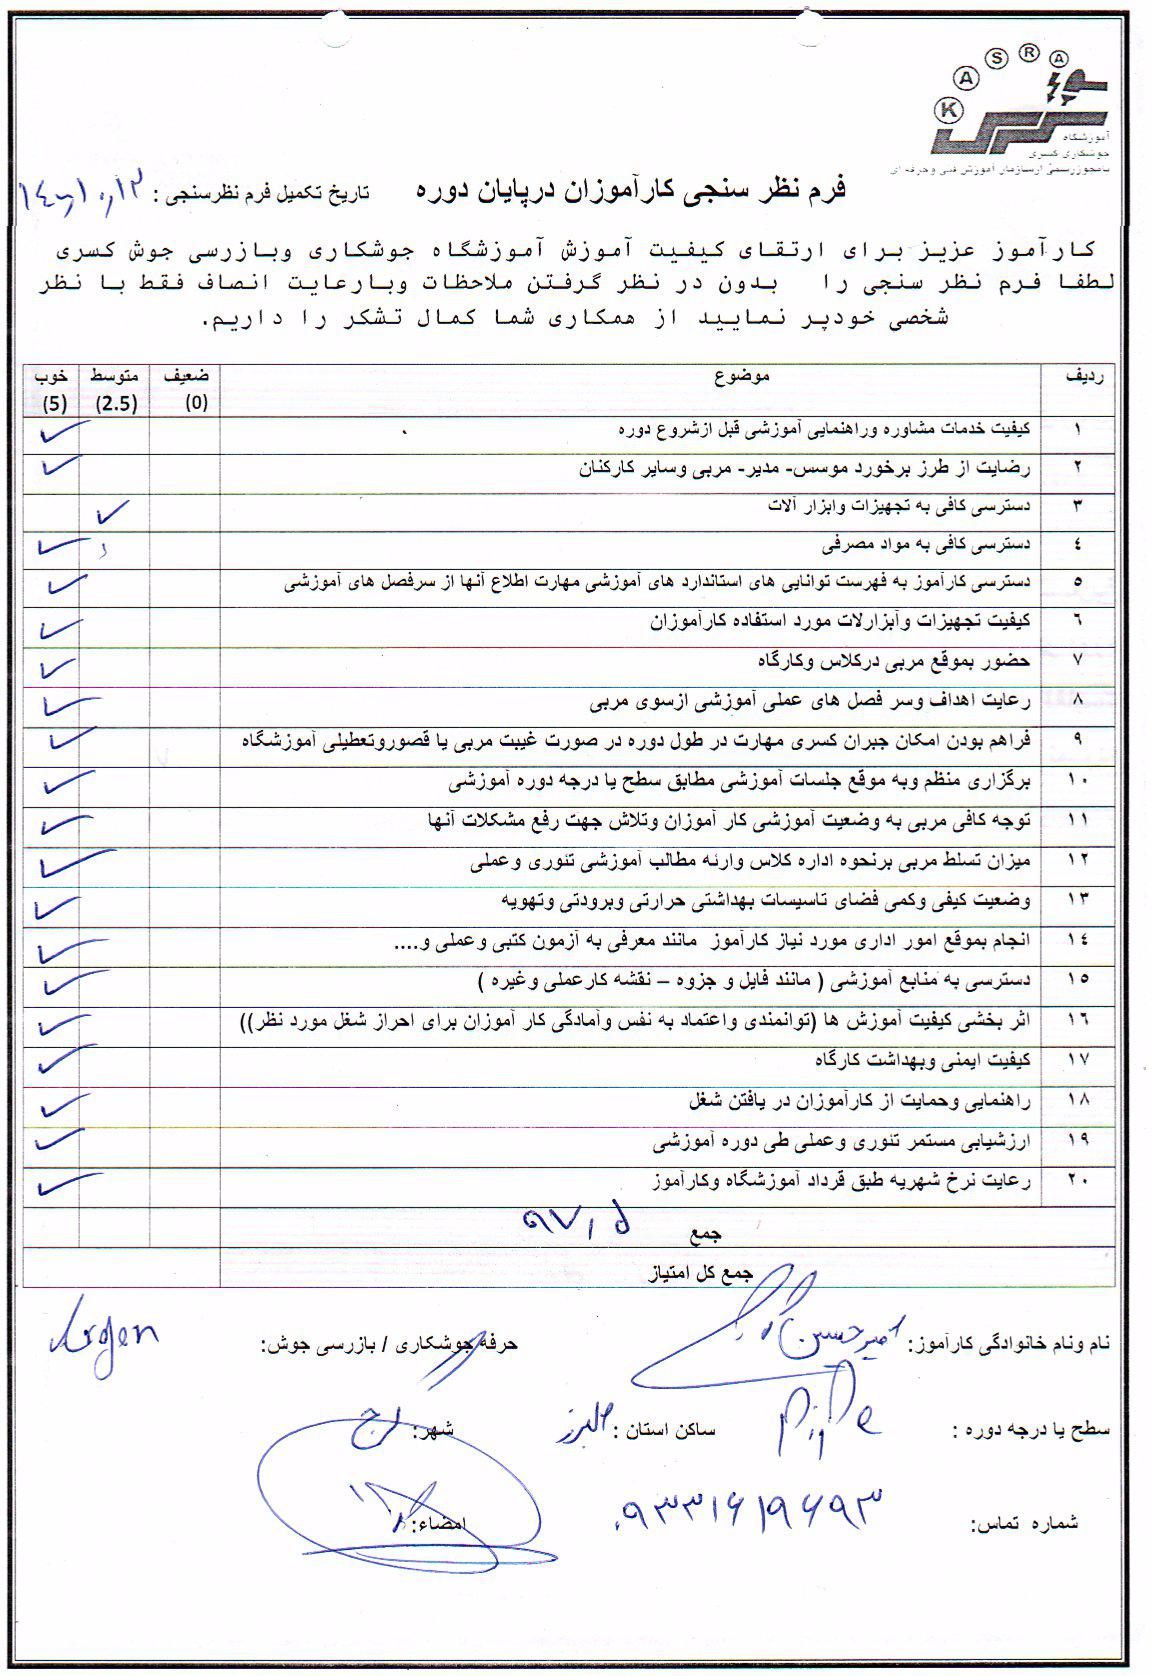 K A S R A
آموزشگاه
جوشکاری کسری
بامجوزرسمی ازسازمان آموزش فنی وحرفه ای
فرم نظر سنجی کارآموزان درپایان دوره تاریخ تکمیل فرم نظرسنجی :
کارآموز عزیز برای ارتقای کیفیت آموزش آموزشگاه جوشکاری وبازرسی جوش کسری
لطفا فرم نظر سنجی را بدون در نظر گرفتن ملاحظات وبارعایت انصاف فقط با نظر
شخصی خودپر نمایید از همکاری شما کمال تشکر را داریم.
ردیف موضوع ضعیف (0) متوسط (2.5) خوب (5)
۱ کیفیت خدمات مشاوره وراهنمایی آموزشی قبل ازشروع دوره ✓
۲ رضایت از طرز برخورد موسس- مدیر- مربی وسایر کارکنان ✓
۳ دسترسی کافی به تجهیزات وابزار آلات ✓
٤ دسترسی کافی به مواد مصرفی ✓
٥ دسترسی کارآموز به فهرست توانایی های استاندارد های آموزشی مهارت اطلاع آنها از سرفصل های آموزشی ✓
٦ کیفیت تجهیزات وآبزارلات مورد استفاده کارآموزان ✓
۷ حضور بموقع مربی درکلاس وکارگاه ✓
۸ رعایت اهداف وسر فصل های عملی آموزشی ازسوی مربی ✓
۹ فراهم بودن امکان جبران کسری مهارت در طول دوره در صورت غیبت مربی یا قصوروتعطیلی آموزشگاه ✓
۱۰ برگزاری منظم وبه موقع جلسات آموزشی مطابق سطح یا درجه دوره آموزشی ✓
۱۱ توجه کافی مربی به وضعیت آموزشی کار آموزان وتلاش جهت رفع مشکلات آنها ✓
۱۲ میزان تسلط مربی برنحوه اداره کلاس وارئه مطالب آموزشی تئوری وعملی ✓
۱۳ وضعیت کیفی وکمی فضای تاسیسات بهداشتی حرارتی وبرودتی وتهویه ✓
۱٤ انجام بموقع امور اداری مورد نیاز کارآموز مانند معرفی به آزمون کتبی وعملی و.... ✓
۱٥ دسترسی به منابع آموزشی ( مانند فایل و جزوه – نقشه کارعملی وغیره ) ✓
۱٦ اثر بخشی کیفیت آموزش ها (توانمندی واعتماد به نفس وآمادگی کار آموزان برای احراز شغل مورد نظر)) ✓
۱۷ کیفیت ایمنی وبهداشت کارگاه ✓
۱۸ راهنمایی وحمایت از کارآموزان در یافتن شغل ✓
۱۹ ارزشیابی مستمر تئوری وعملی طی دوره آموزشی ✓
۲۰ رعایت نرخ شهریه طبق قرداد آموزشگاه وکارآموز ✓
جمع ۹۷,۵
جمع کل امتیاز
نام ونام خانوادگی کارآموز: امیرحسین حرفه جوشکاری / بازرسی جوش:
سطح یا درجه دوره : ساکن استان : البرز شهر: کرج
شماره تماس: ۰۹۳۳۱۶۱۹۶۹۳ امضاء: